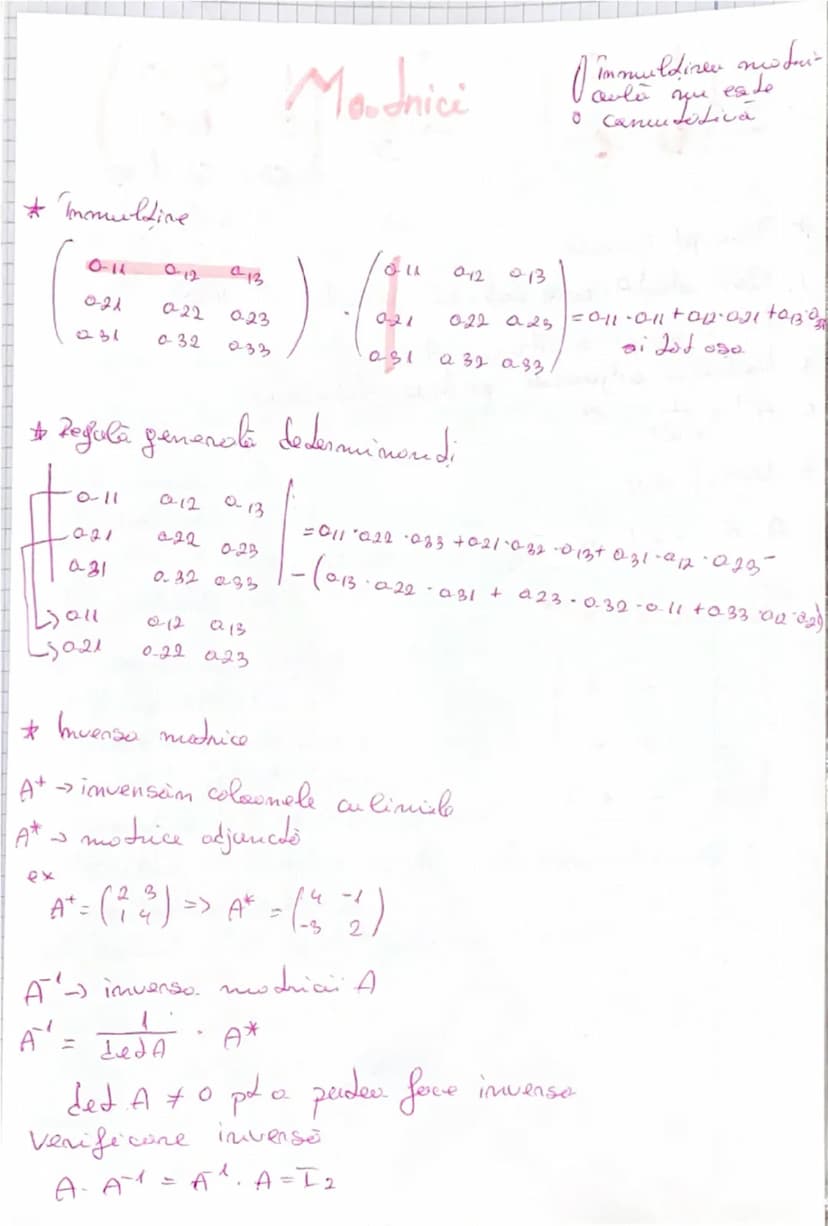 Matrici
! înmulțirea matri-
ceală nu este
comutativă
* înmulțire
( a11 a12 a13 ) · ( a11 a12 a13 )
( a21 a22 a23 ) · ( a21 a22 a23 ) = a11 · a11 + a12 · a21 + a13 · a31
( a31 a32 a33 ) ( a31 a32 a33 ) și tot așa
* Regulă generală determinanți
| a11 a12 a13 |
| a21 a22 a23 | = a11 · a22 · a33 + a21 · a32 · a13 + a31 · a12 · a23 -
| a31 a32 a33 | - (a13 · a22 · a31 + a23 · a32 · a11 + a33 · a12 · a21)
→ a11 a12 a13
→ a21 a22 a23
* Inversa matrice
A^t → inversăm coloanele cu liniile
A* → matrice adjunctă
ex
A^t = (2 3 / 1 4) => A* = (4 -1 / -3 2)
A^-1 → inversa matricii A
A^-1 = 1/det A · A*
det A ≠ 0 pt a putea face inversa
verificare inversă
A · A^-1 = A^-1 · A = I2